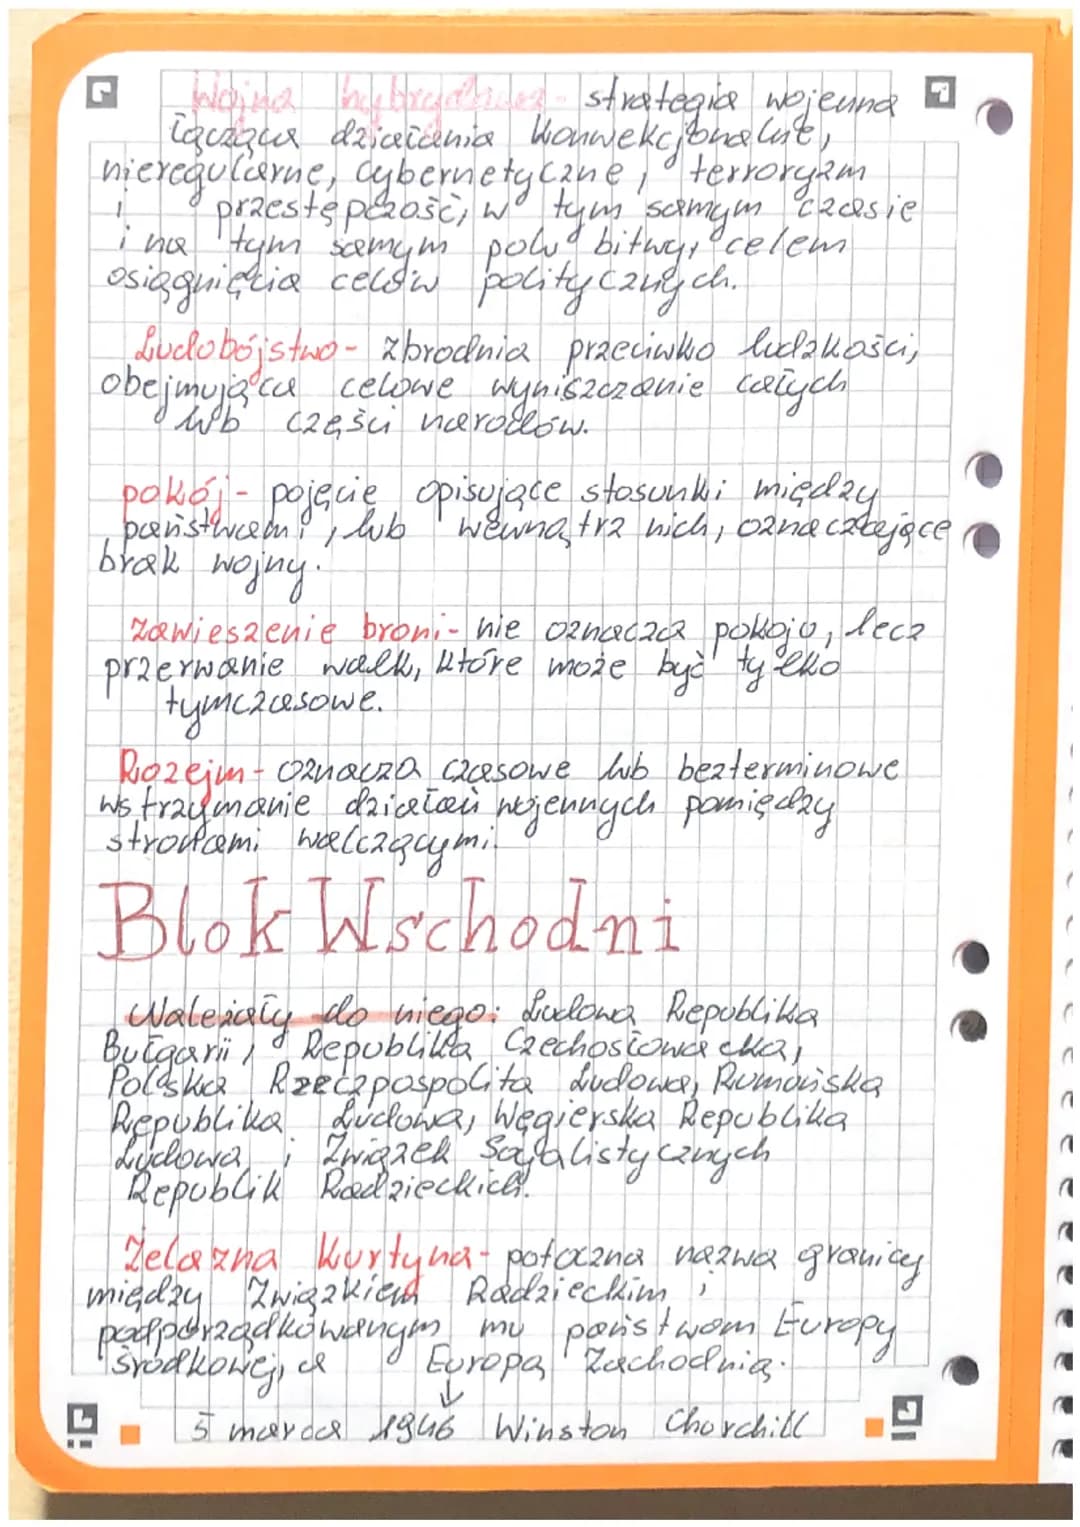 Wojna hybrydowa - strategia wojenna
łącząca działania konwekcjonalne,
nieregularne, cybernetyczne, terroryzm
i przestępczość, w tym samym czasie
i na tym samym polu bitwy, celem
osiągnięcia celów politycznych.
Ludobójstwo - zbrodnia przeciwko ludzkości,
obejmująca celowe wyniszczanie całych
lub części narodów.
pokój - pojęcie opisujące stosunki między
państwami, lub wewnątrz nich, oznaczające
brak wojny.
Zawieszenie broni - nie oznacza pokoju, lecz
przerwanie walk, które może być tylko
tymczasowe.
Rozejm - oznacza czasowe lub bezterminowe
wstrzymanie działań wojennych pomiędzy
stronami walczącymi.
Blok Wschodni
Należały do niego: Ludowa Republika
Bułgarii, Republika Czechosłowacka,
Polska Rzeczpospolita Ludowa, Rumuńska
Republika Ludowa, Węgierska Republika
Ludowa i Związek Socjalistycznych
Republik Radzieckich.
Żelazna Kurtyna - potoczna nazwa granicy
między Związkiem Radzieckim i
podporządkowanym mu państwom Europy
środkowej, a Europą Zachodnią.
↓
5 marca 1946 Winston Churchill